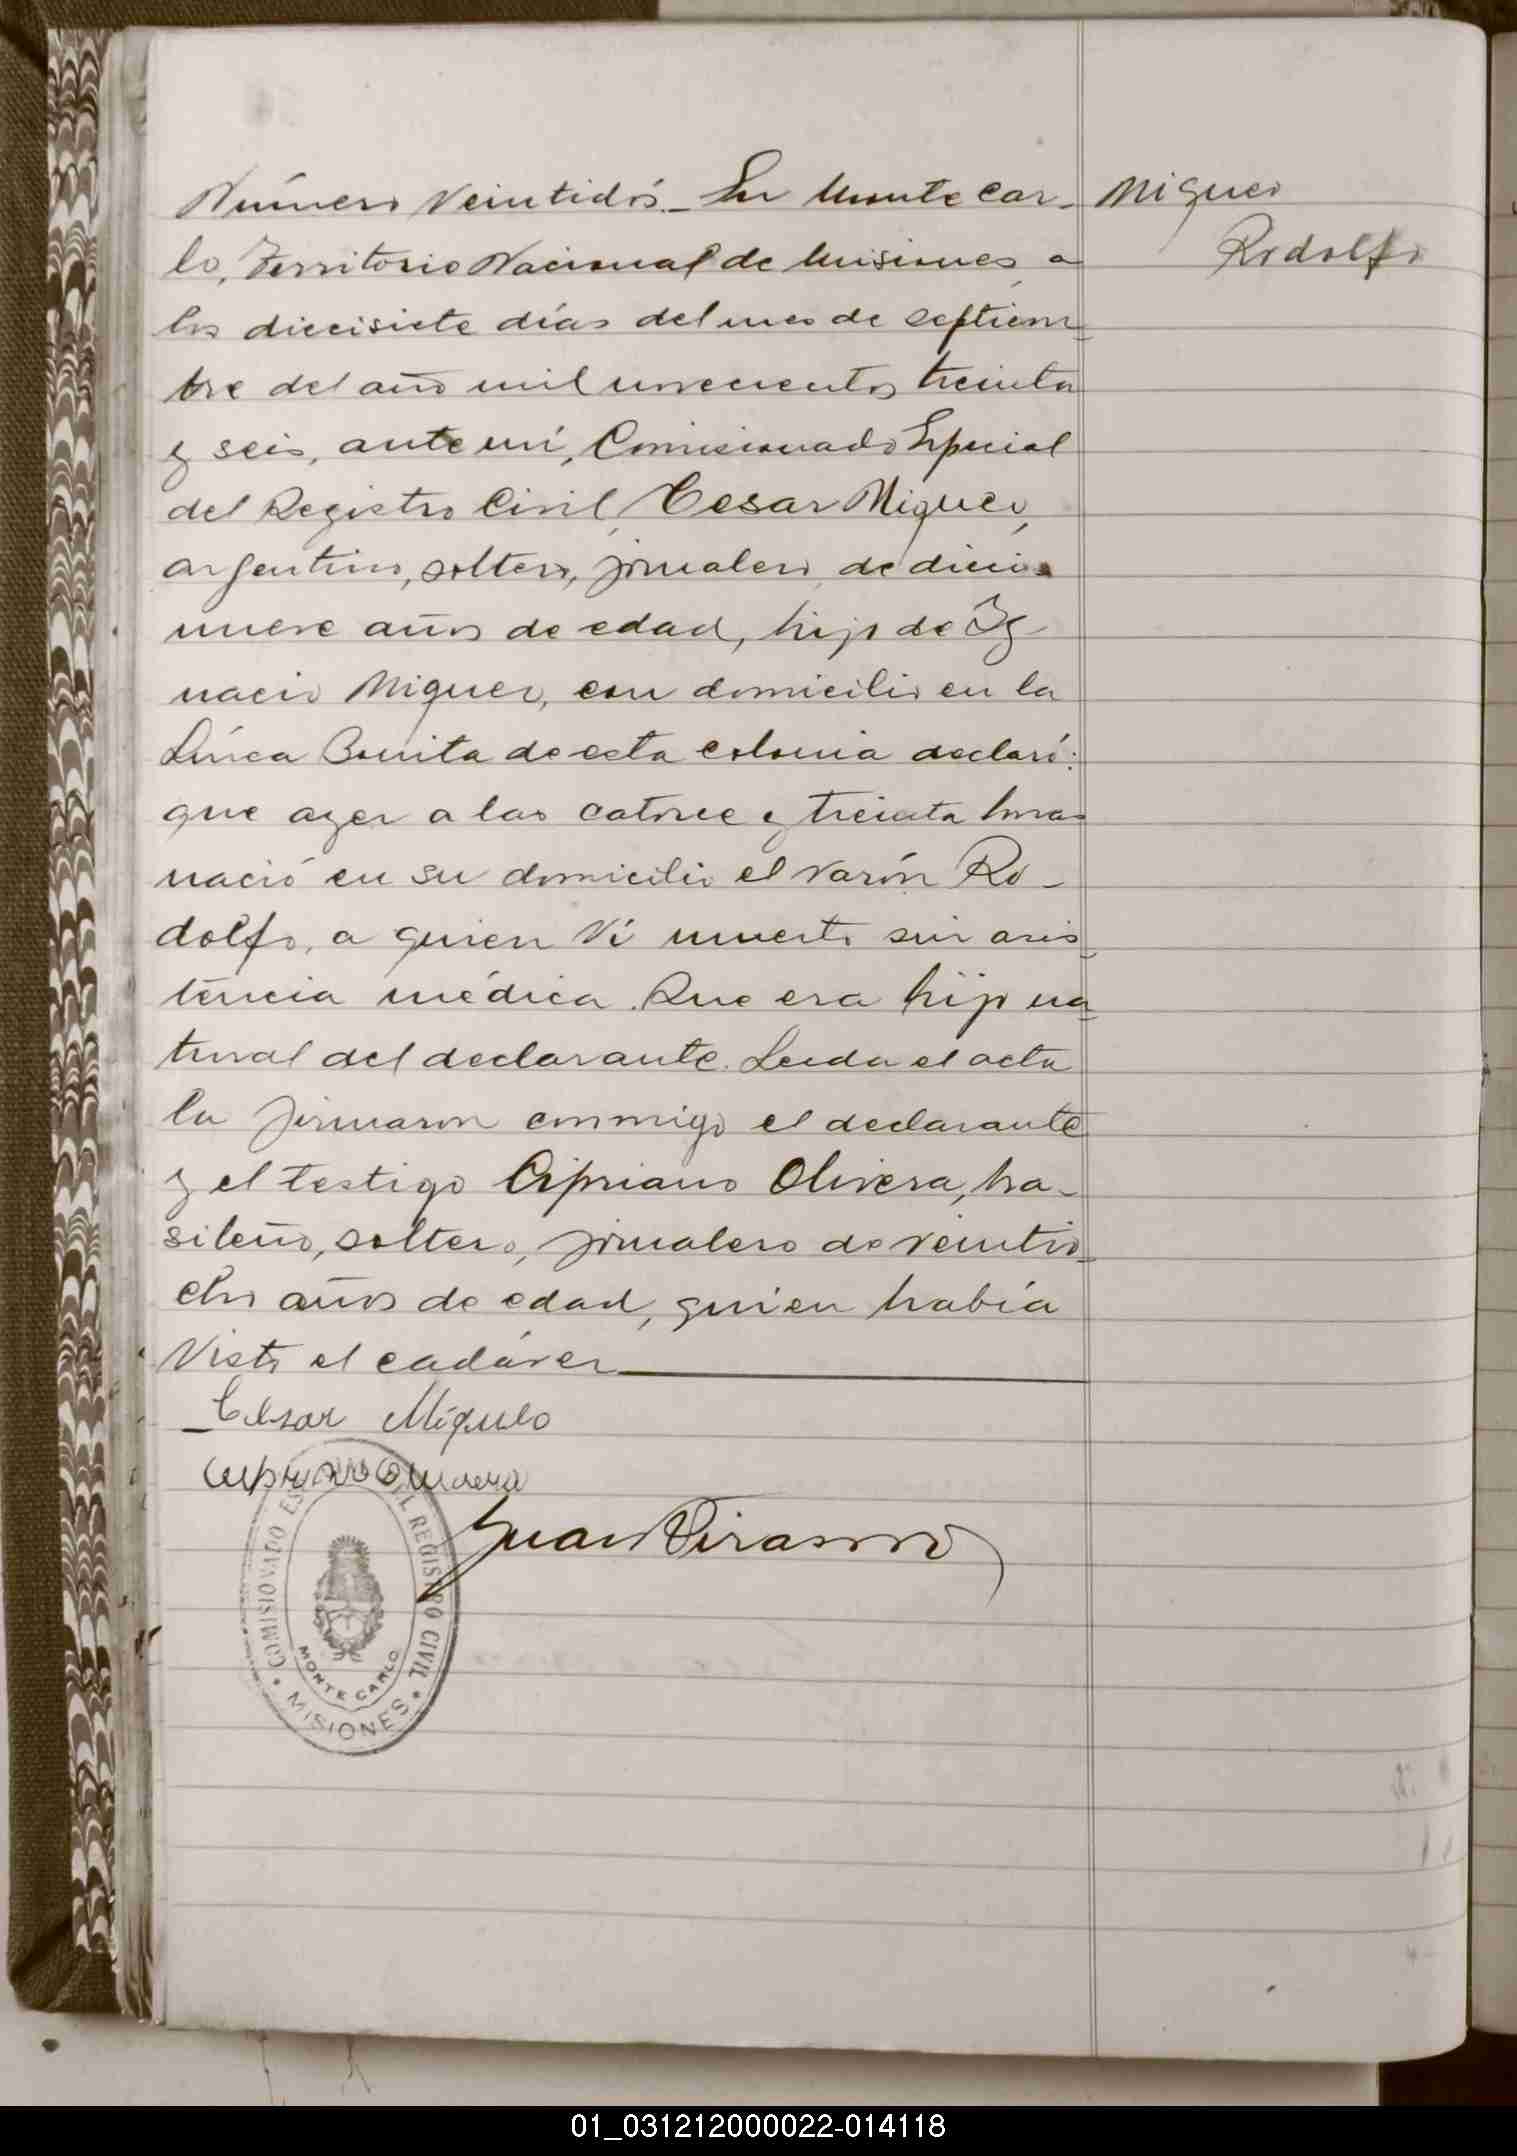 Número Veintidós._ En Monte Car-
lo, Territorio Nacional de Misiones, a
los diecisiete días del mes de septiem-
bre del año mil novecientos treinta
y seis, ante mí, Comisionado Especial
del Registro Civil, Cesar Migueo,
argentino, soltero, jornalero, de dieci-
nueve años de edad, hijo de Ig-
nacio Migueo, con domicilio en la
Línea Bonita de esta colonia declaró:
que ayer a las catorce y treinta horas
nació en su domicilio el varón Ro-
dolfo, a quien ví muerto sin asis-
tencia médica. Que era hijo na-
tural del declarante. Leída el acta
la firmaron conmigo el declarante
y el testigo Cipriano Olivera, bra-
sileño, soltero, jornalero de veintio-
cho años de edad, quien había
visto el cadáver
Migueo
Rodolfo
Cesar Miguelo
Cipriano Olivera
Juan
COMISIONADO ESPECIAL DEL REGISTRO CIVIL
MONTE CARLO
MISIONES
01_031212000022-014118